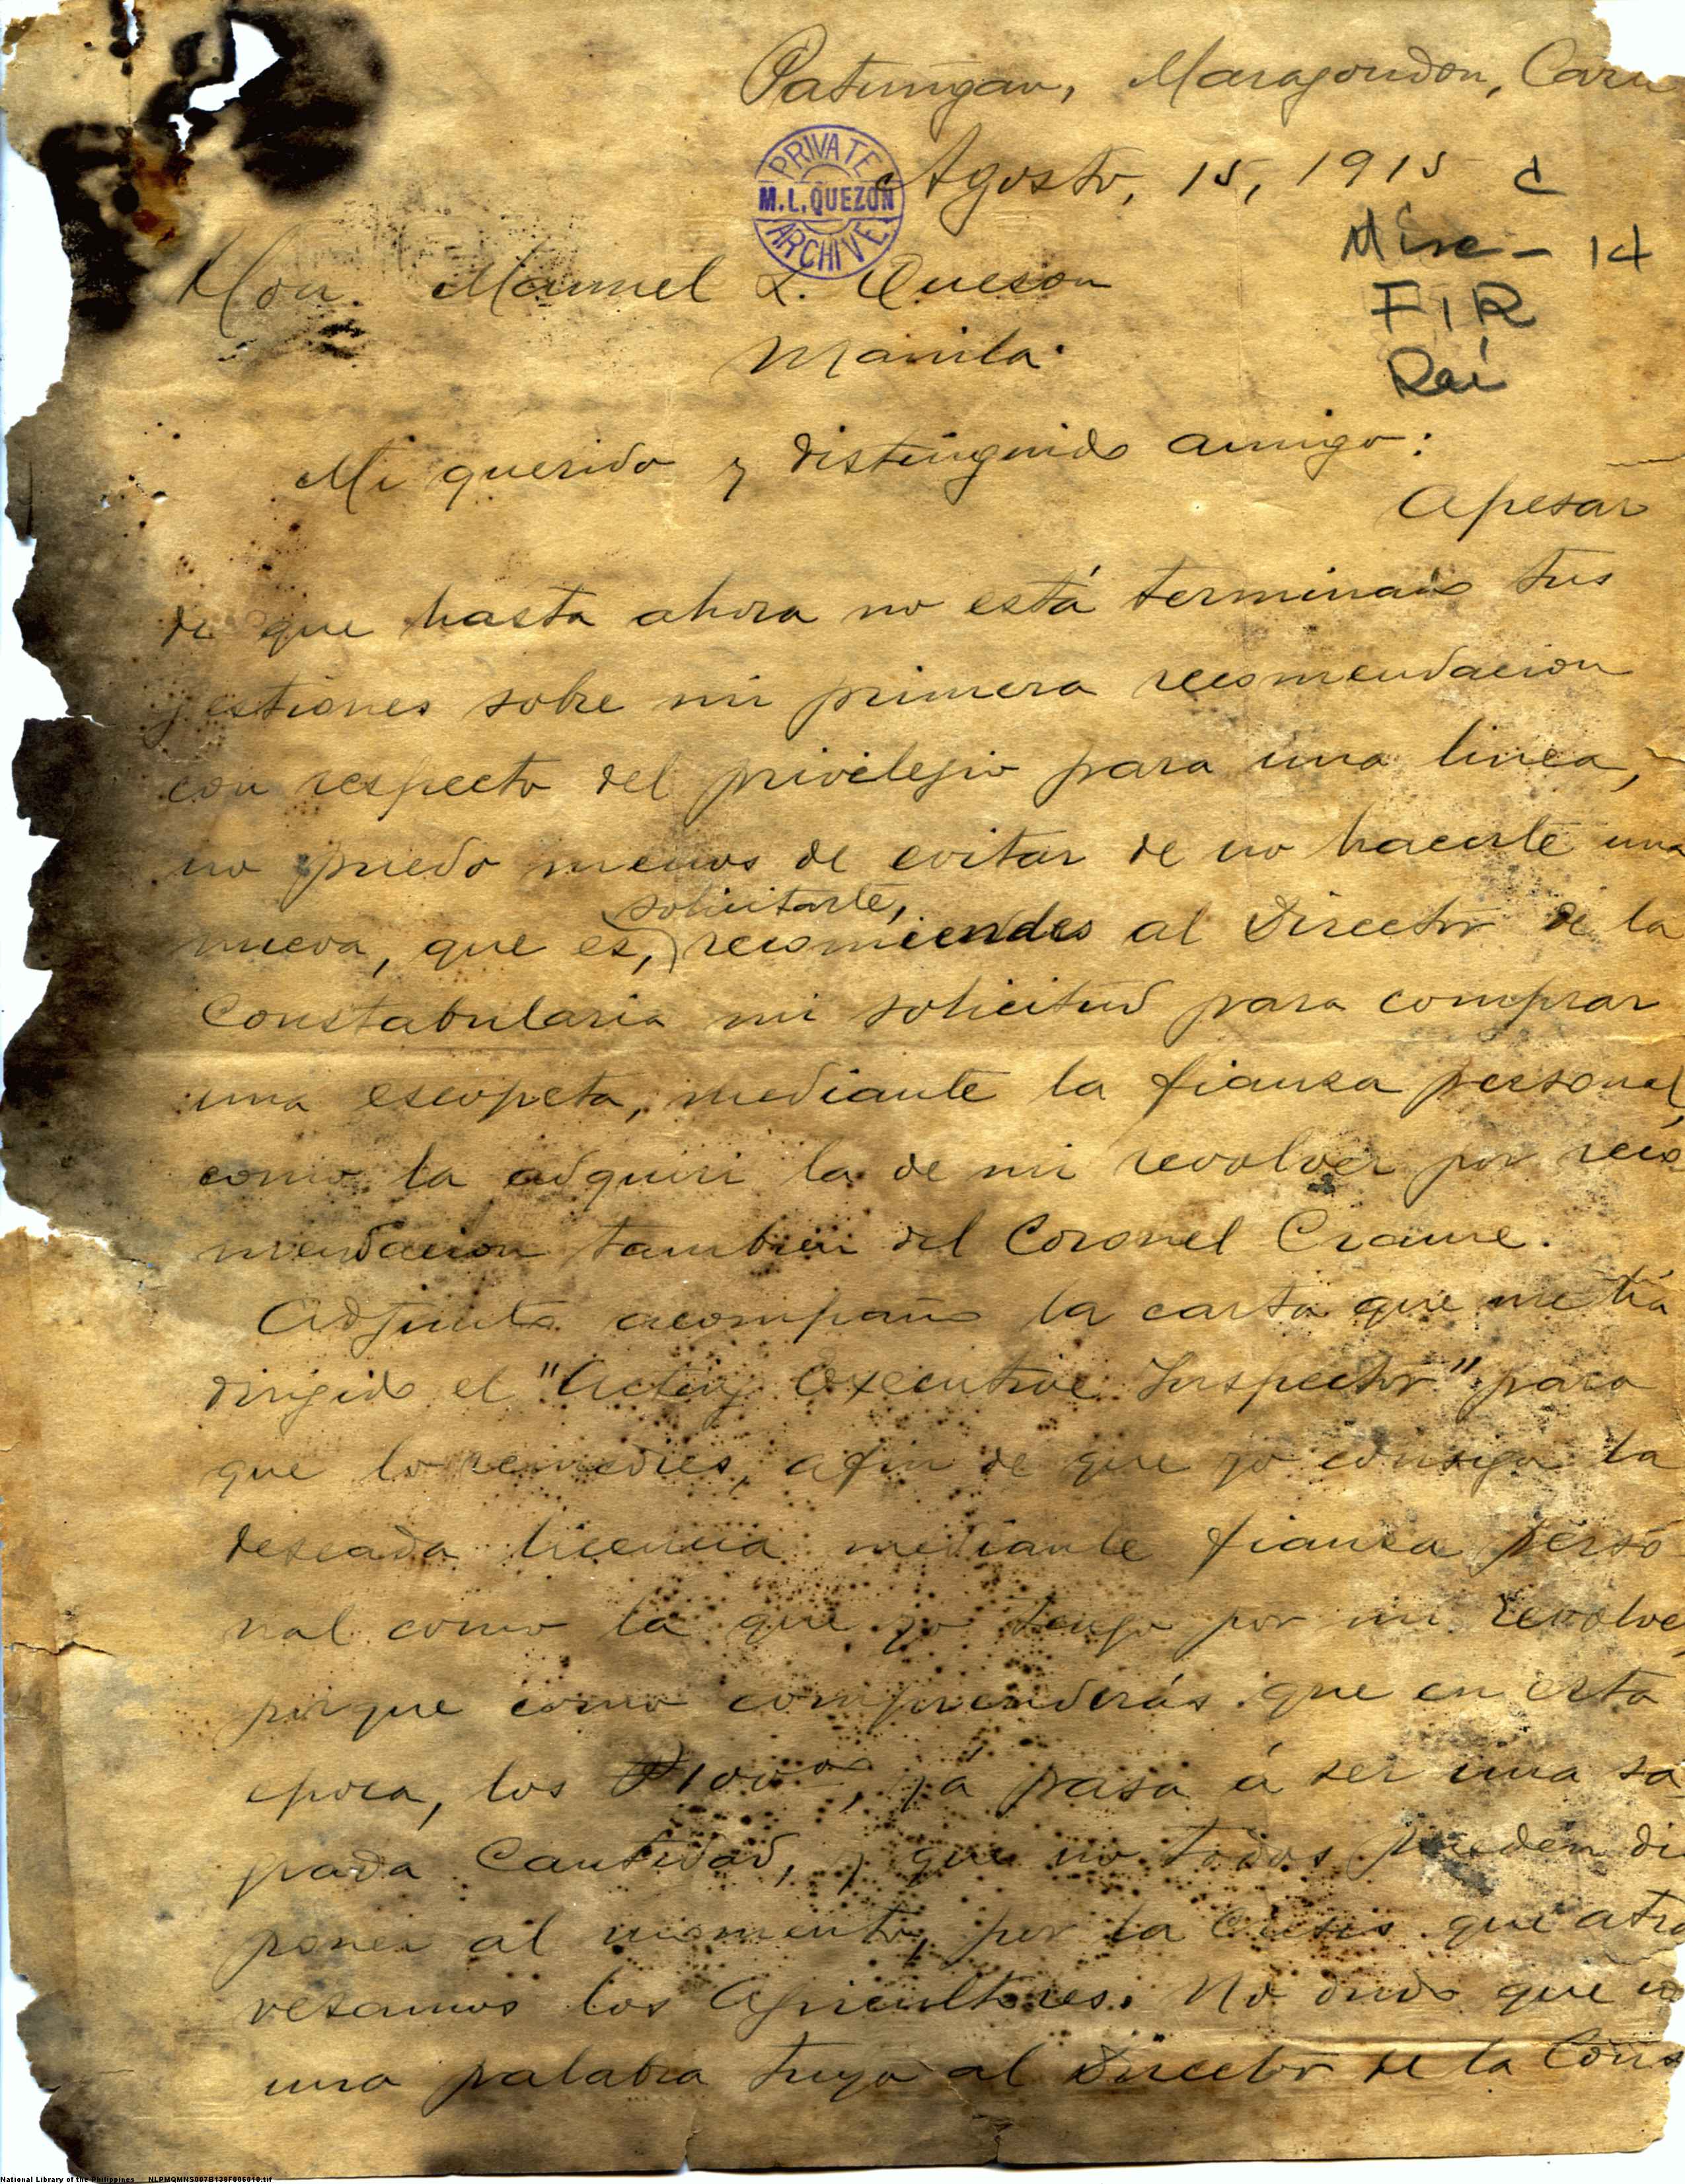 Patungan, Maragondon, Cavi
Agosto, 15, 1915 c
PRIVATE
M.L. QUEZON
ARCHIVE
Misc - 14
Hon. Manuel L. Queson
FIR
Manila.
Mi querido y distinguido amigo:
Apesar
de que hasta ahora no está terminado tus
gestiones sobre mi primera recomendacion
con respecto del privilegio para una linea,
no puedo menos de evitar de no hacerte una
solicitarte,
nueva, que es, recomiendes al Director de la
Constabularia mi solicitud para comprar
una escopeta, mediante la fianza personal,
como la adquiri la de mi revolver por reco
mendacion tambien del Coronel Crame.
Adjunto acompaño la carta que me há
dirigido el "Acting Executive Inspector" para
que lo remedies, afin de que yo consiga la
deseada licencia mediante fianza perso
nal como la que yo tengo por mi revolve
porque como comprenderás que en esta
epoca, los ₱100.00, yá pasa á ser una sa
grada Cantidad, y que no todos pueden dis
poner al momento, por la Crisis que atra
vesamos los Agricultores. No dudo que
una palabra tuya al Director de la Cons
National Library of the Philippines NLPMQMNS007B138F006010.tif